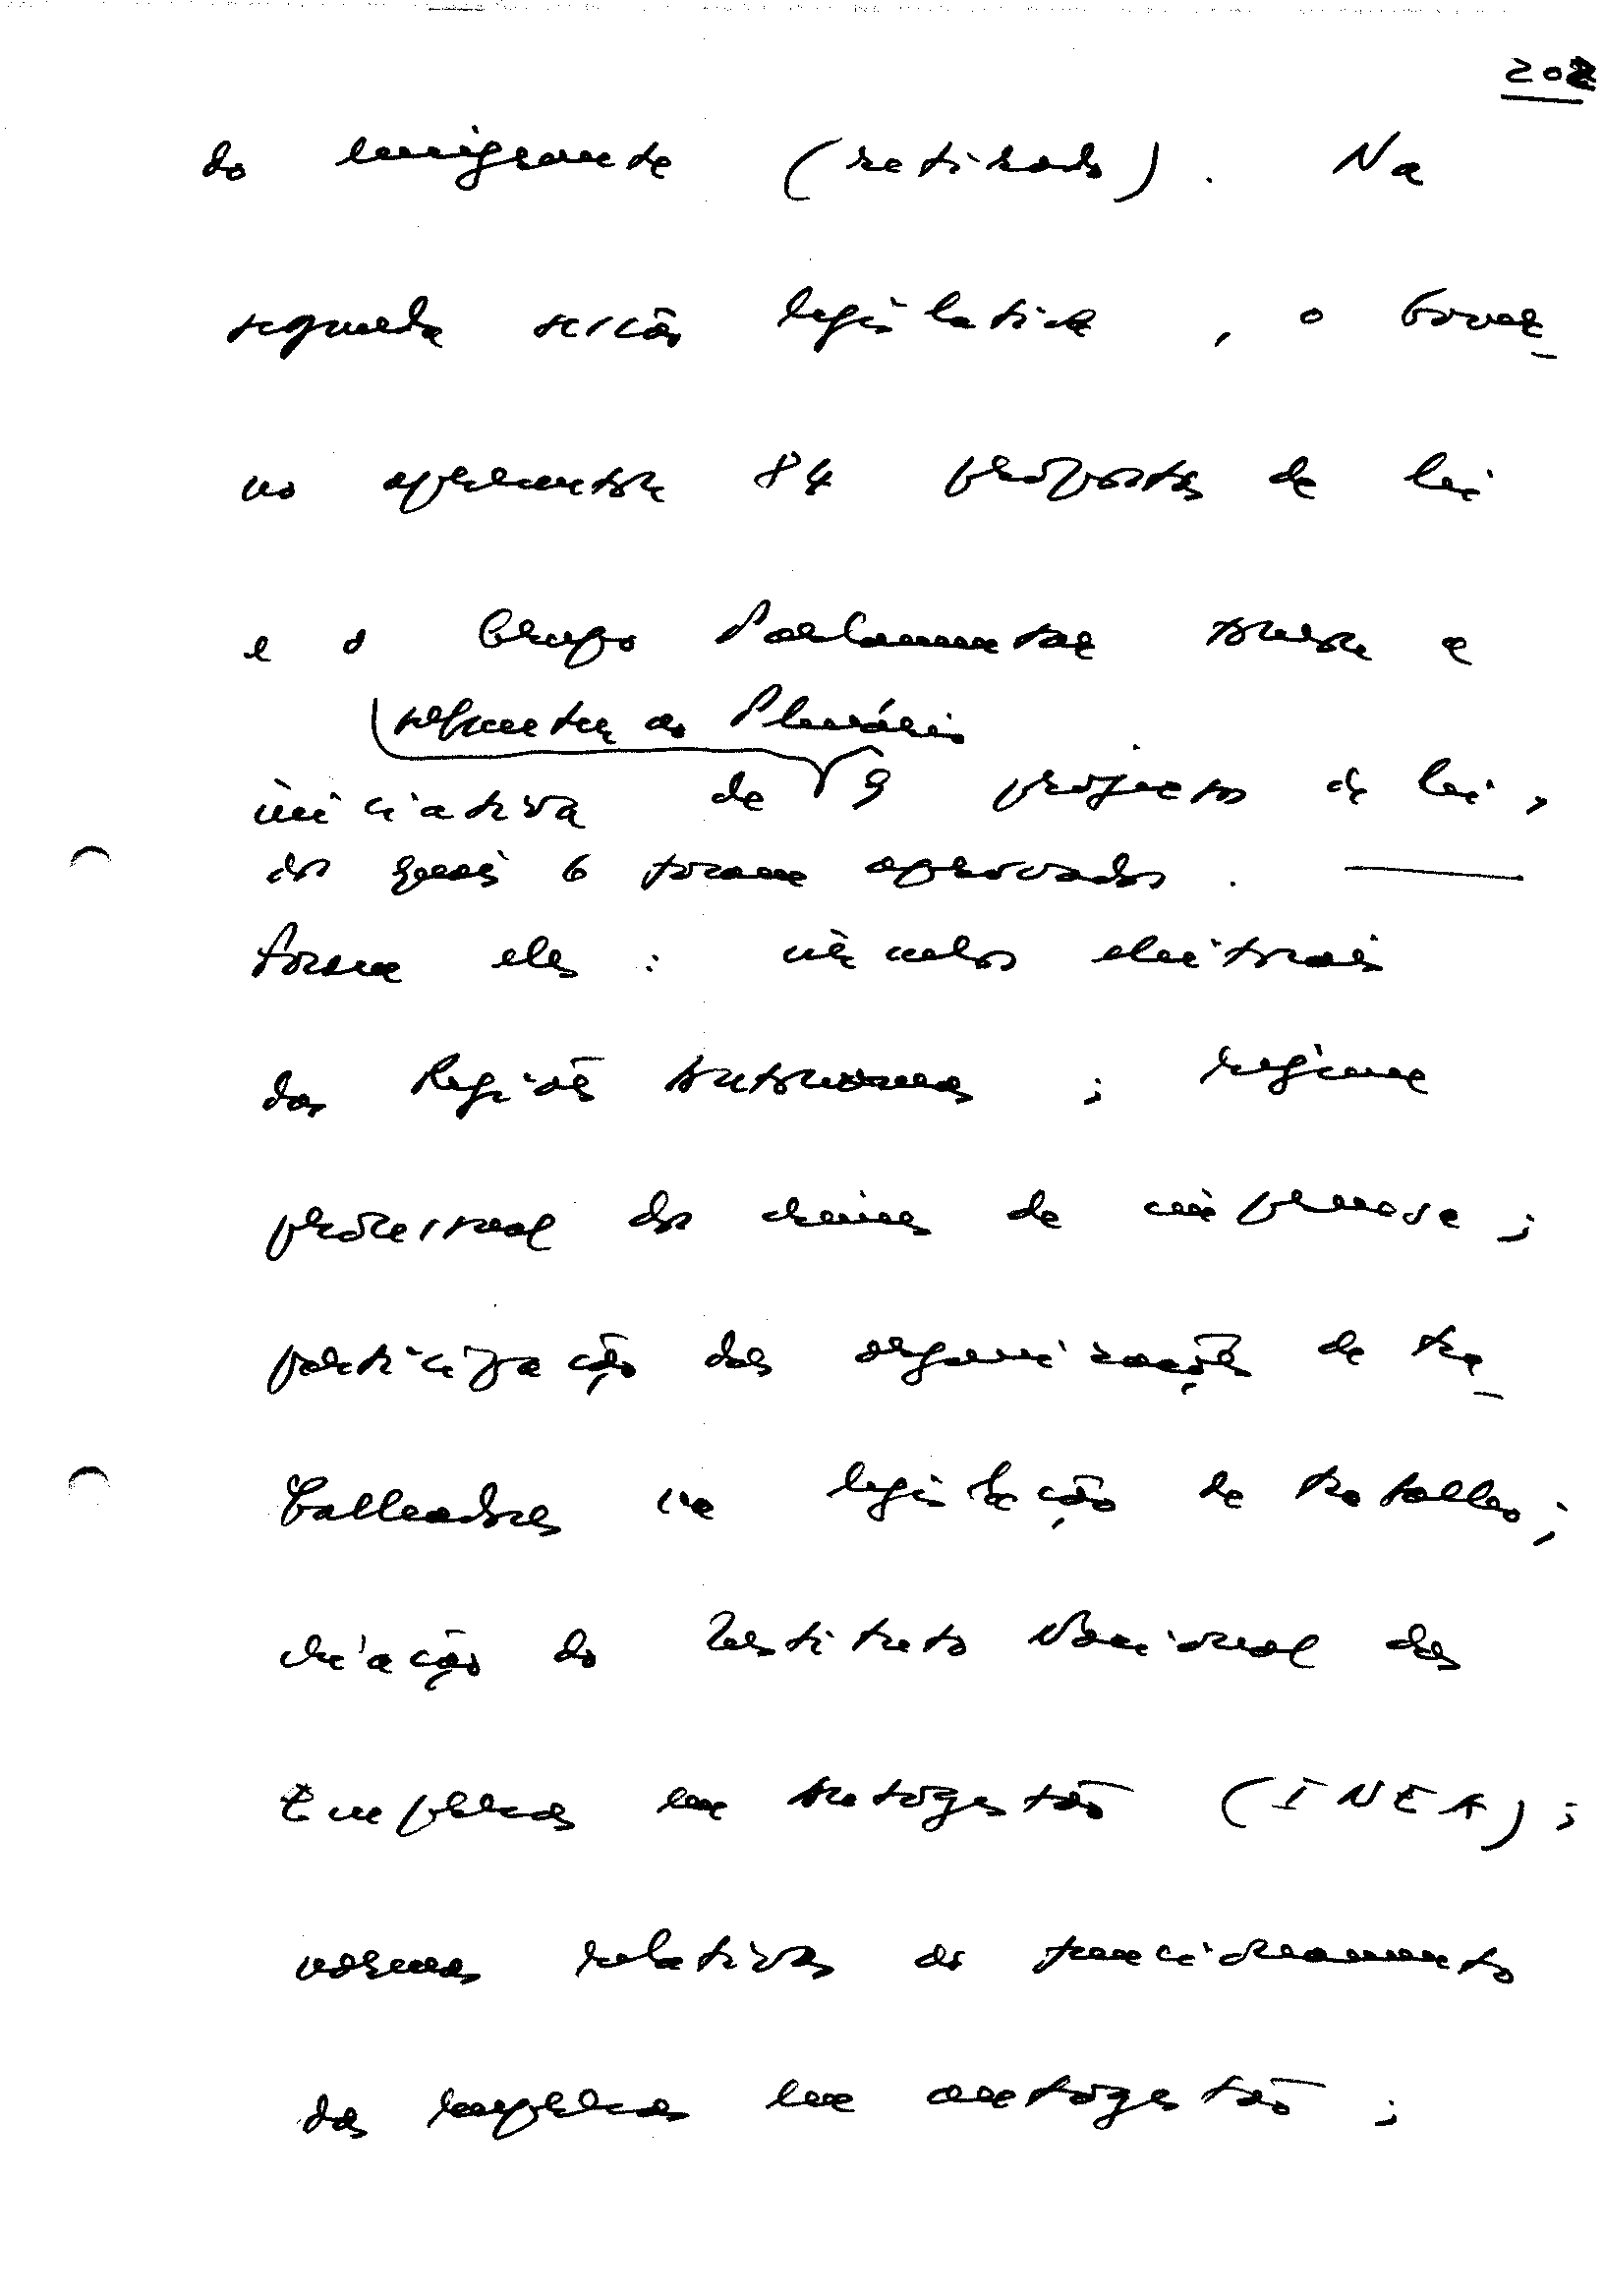 202
do emigrante (retirado). Na
segunda sessão legislativa, o Gover-
no apresentou 84 propostas de lei
e o Grupo Parlamentar tomou a
ao Plenário
iniciativa de 9 projectos de lei,
dos quais 6 foram aprovados. —
Foram eles: círculos eleitorais
das Regiões Autónomas; regime
processual dos crimes de imprensa;
participação das organizações de tra-
balhadores na legislação de trabalho;
criação do Instituto Nacional das
Empresas em Autogestão (INEA);
normas relativas ao funcionamento
das empresas em autogestão;